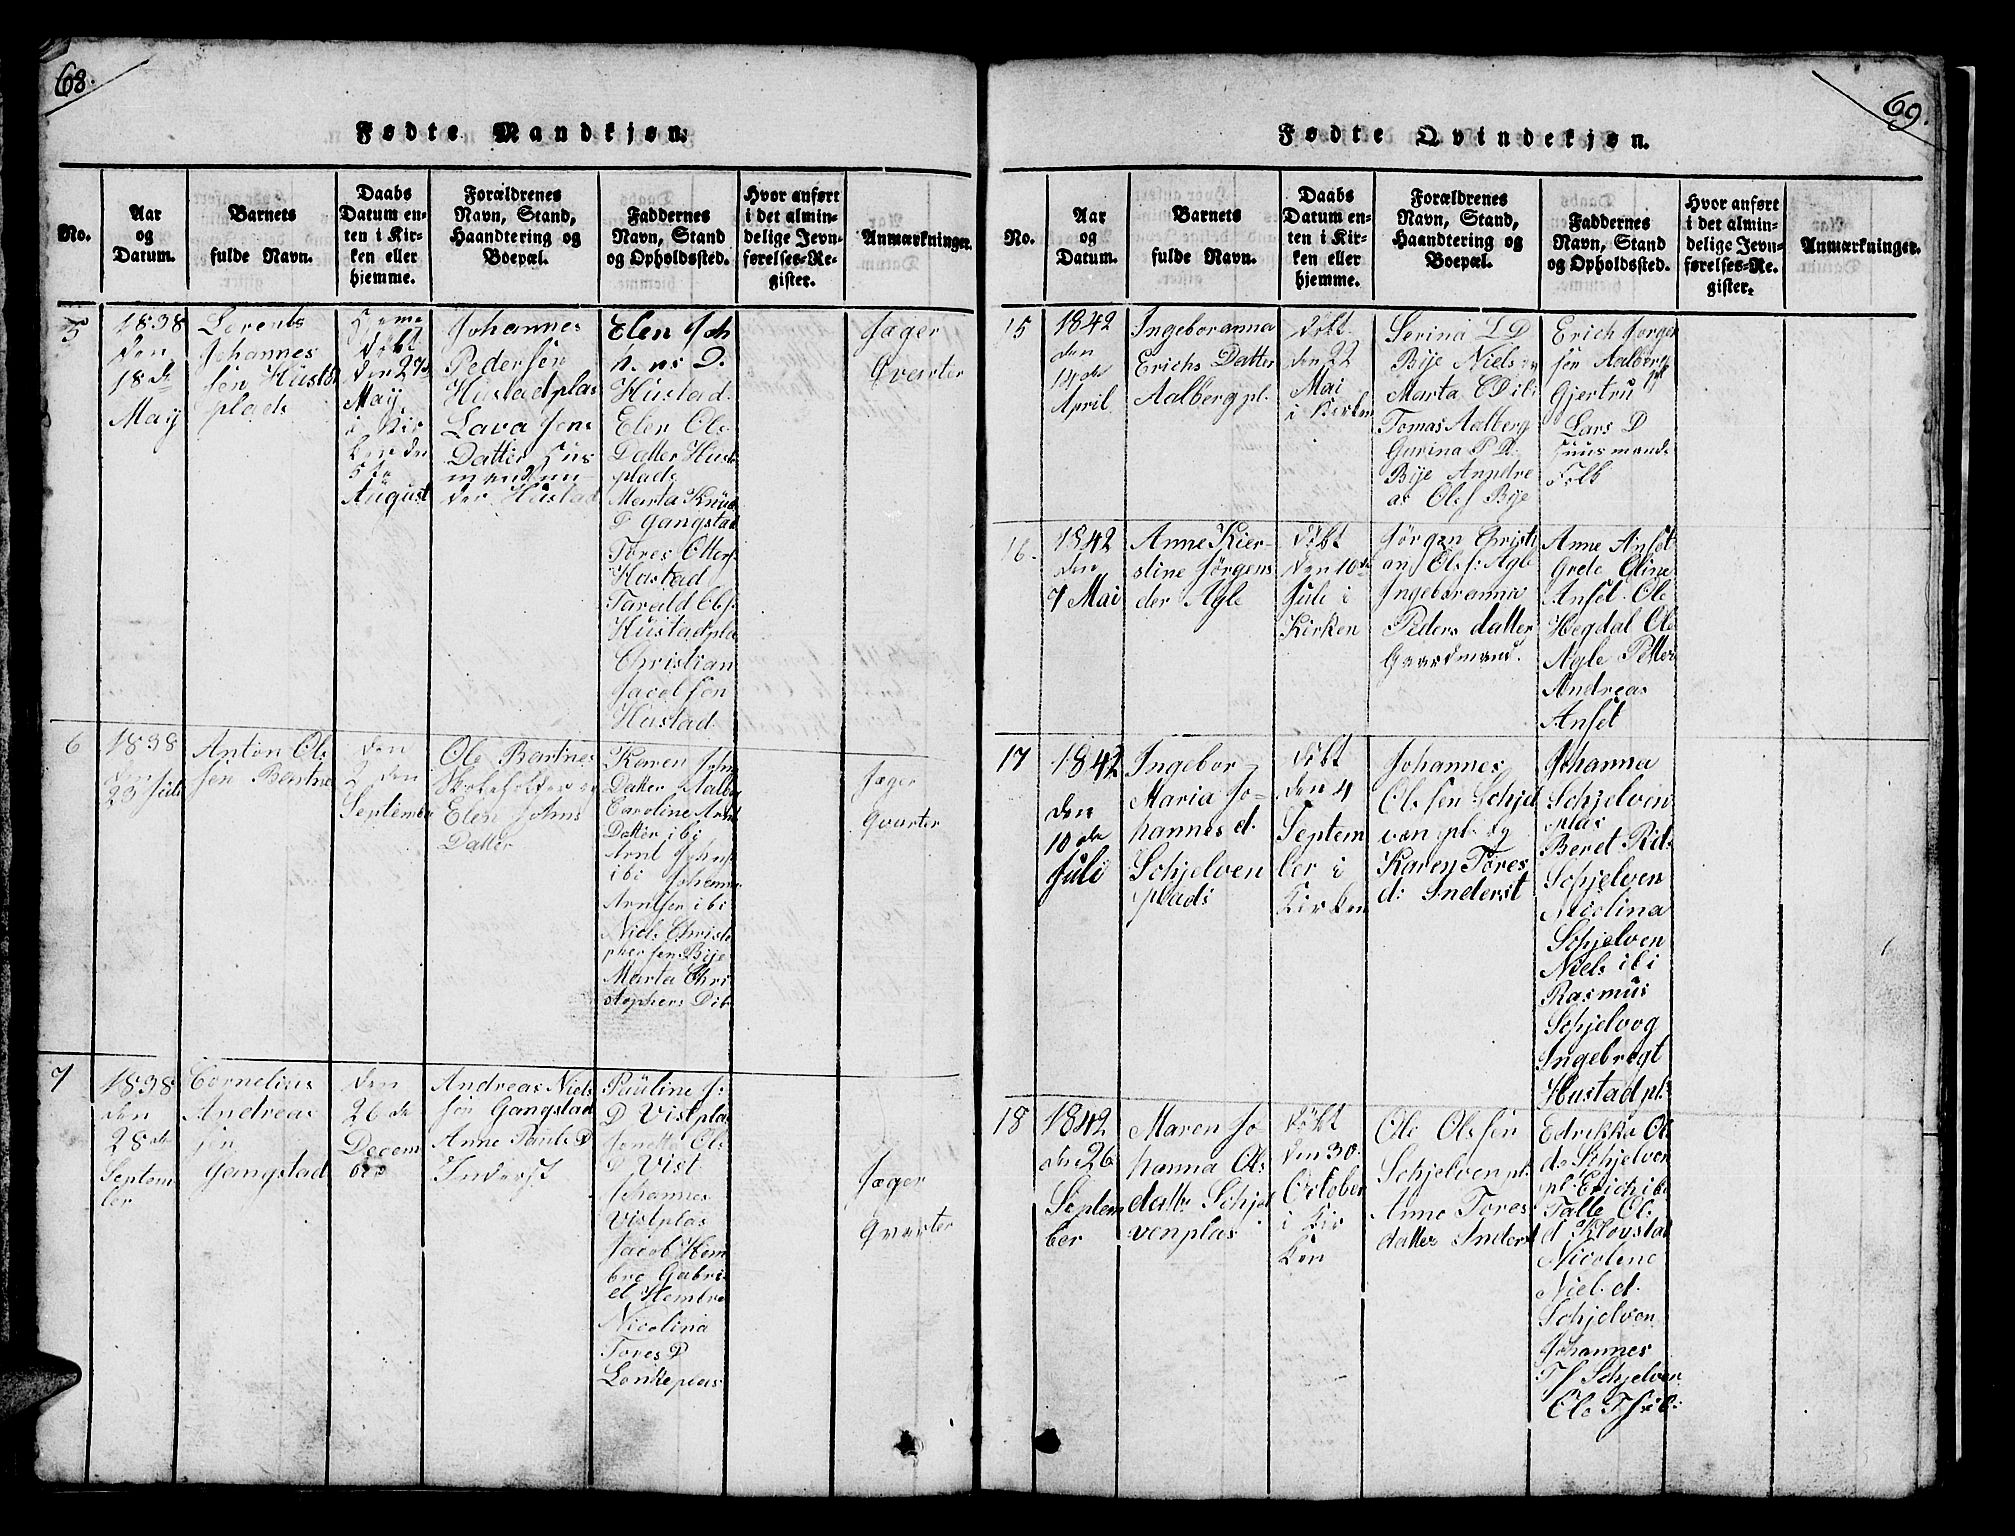 68.
Fødte Mandkjøn.
No.
Aar
og
Datum.
Barnets
fulde Navn.
Daabs
Datum en-
ten i Kir-
ken eller
hjemme.
Forældrenes
Navn, Stand,
Haandtering og
Boepæl.
Faddernes
Navn, Stand
og Opholdssted.
Hvor anført
i det almin-
delige Jevn-
førelses-Re-
gister.
Anmærkninger.
5
1838
den
18de
May
Lorents
Johannes
sen Hustad
plads
Hjeme
døbt
den 27de
May
i Kir
ken den
5te
August
Johannes
Pedersen
Hustadplas
Lava Jens
Datter Hus
mand un
der Hustad
Elen Joh
Hustad.
Elen Ols
Datter Hust
plads
Marta Knud
D Gangstad
Tores Otters
Hustad
Tarald Ols
Hustadpla
Christian
Jacobsen
Hustad
Jæger
Qvarter
6
1838
den
23 Juli
Anton Ols
sen Bartnes
den
2 den
September
Ole Bartnes
Elen Johns
Datter
Karen John
Datter Aalberg
Caroline Arnt
Datter ibi
Arnt Johns
ibi Johannes
Arntsen ibi
Niels Christo
phersen Bije
Marta Chri
stophers D ib
Jæger
Qvarter
7
1838
den
28de
Septem
ber
Cornelius
Andreas
sen
Gangstad
den
26de
Decem
ber
Andreas Niels
sen Gangstad
Anne Pauls D
Inderst
Pauline J:
D Vistplas
Jonetta Ols
D Vist
Johannes
Vistplas
Jacob Hem
bre Gabri
el Hembre
Nicolina
Tores D
Lonkeplas
Jæger
Qvarter
69.
Fødte Qvindekjøn.
No.
Aar
og
Datum.
Barnets
fulde Navn.
Daabs
Datum en-
ten i Kir-
ken eller
hjemme.
Forældrenes
Navn, Stand,
Haandtering og
Boepæl.
Faddernes
Navn, Stand
og Opholdssted.
Hvor anført
i det almin-
delige Jevn-
førelses-Re-
gister.
Anmærkninger.
15
1842
den
14de
April
Ingeboranna
Erichs Datter
Aalberg pl.
døbt
den 22
Mai
i Kirken
Serina L D
Bije Niels
Marta C D ibi
Tomas Aalberg
Gurina P D.
Bije Anndre
as Olsf Bije
Erich Jørgen
sen Aalberg
pl
Gjertru
Lars D
Huusmands
Folk
16.
1842
den
7 Mai
Anne Kier-
stine Jørgens
der Agle
døbt
den 10de
Juli i
Kirken
Jørgen Christi
an Olsf: Agle
Ingeboranna
Peders datter
Gaardmand.
Anne Anset
Grete Oline
Anset Ole
Hegdal Ole
Agle Petter
Andreas
Anset
17
1842
den
10de
Juli
Ingebor
Maria Jo-
hannes d.
Schjelven
plads
døbt
den 4
Septem
ber i
Kirken
Johannes
Olsen Schjel
ven pl. og
Karen Tores
d: Inderst
Johanna
Schjelven
plas
Beret Rid.
Schjelven
Nicolina
Schjelven
Niels ibi
Rasmus
Schjelvog
Ingebregt
Hustad pl:
18
1842
den 26
Septem
ber
Maren Jo
hanna Ols
datter Schjel
venplas
døbt
den 30
October
i Kir
ken
Ole Olsen
Schjelven pl:
Anne Tores
datter Inderst
Edrikka Ol
d: Schjelven
pl: Erich ibi
Talle Ol:
d Kløvstad
Nicolene
Niel. d.
Schjelven
Johannes
T f Schjelven
Ole T f ibi